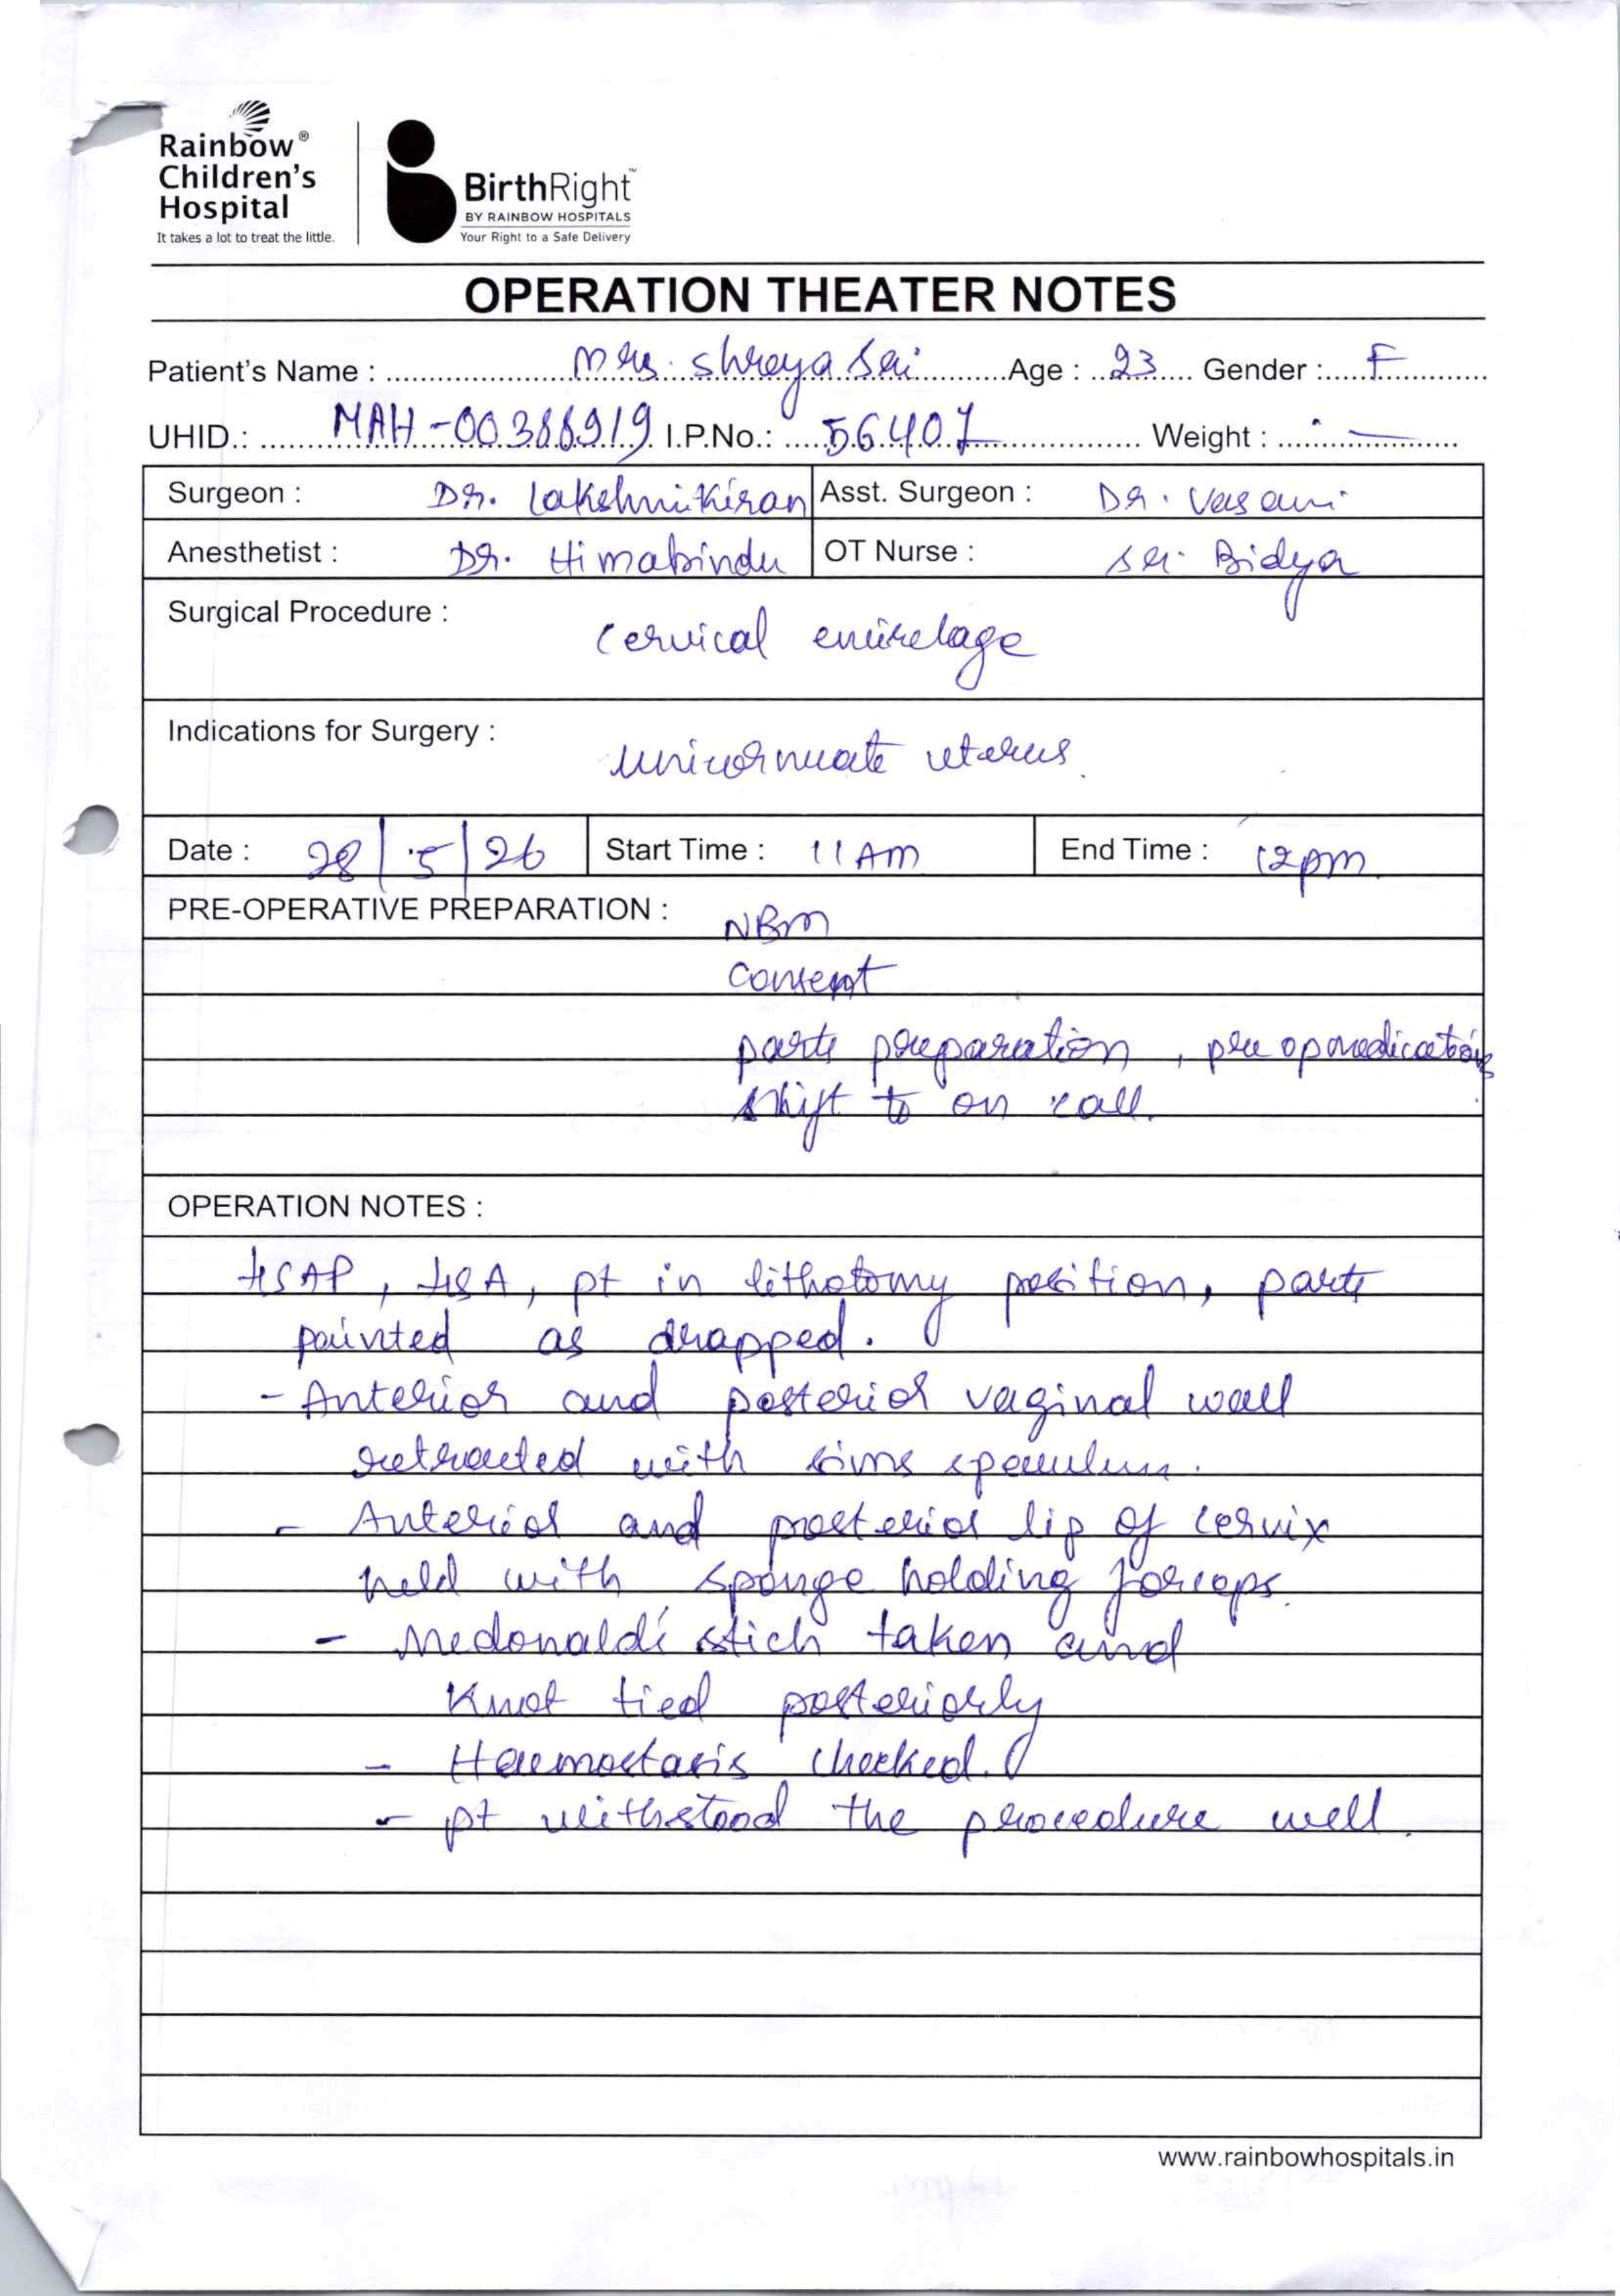 Rainbow®
Children's
Hospital
It takes a lot to treat the little.
BirthRight™
BY RAINBOW HOSPITALS
Your Right to a Safe Delivery
OPERATION THEATER NOTES
Patient's Name : Mrs. Shreya Sai Age : 23 Gender : F
UHID.: MAH-00388919 I.P.No.: 56407 Weight : —
Surgeon : Dr. Lakshmi Kiran Asst. Surgeon : Dr. Vasavi
Anesthetist : Dr. Himabindu OT Nurse : Sr. Bidya
Surgical Procedure : Cervical encirclage
Indications for Surgery : unicornuate uterus.
Date : 28/5/26 Start Time : 11 AM End Time : 12pm
PRE-OPERATIVE PREPARATION : NBM
Consent
parts preparation, pre op medications
shift to on call.
OPERATION NOTES :
↓SAP, ↓SA, pt in lithotomy position, parts
painted as drapped.
- Anterior and posterior vaginal wall
retracted with sims speculum.
- Anterior and posterior lip of cervix
held with sponge holding forceps.
- Mcdonald's stich taken and
Knot tied posteriorly
- Haemostasis checked.
- pt withstood the procedure well.
www.rainbowhospitals.in